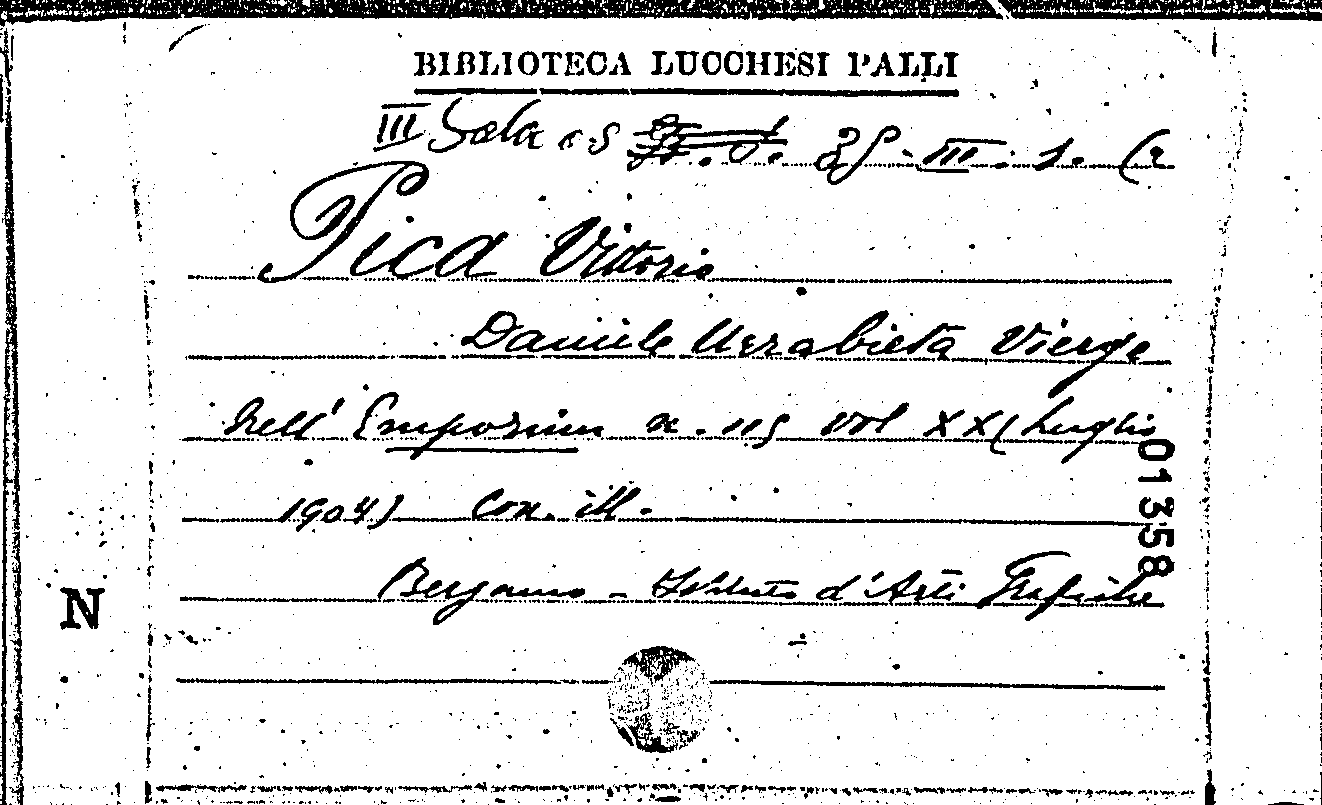 BIBLIOTECA LUCCHESI PALLI
III Sala 25-III. 1. (2
Pica Vittorio
Daniele Urrabieta Vierge
nell' Emporium n. 115 vol XX (Luglio
1904) Con. ill.
Bergamo - Istituto d'Arti Grafiche
01358
N